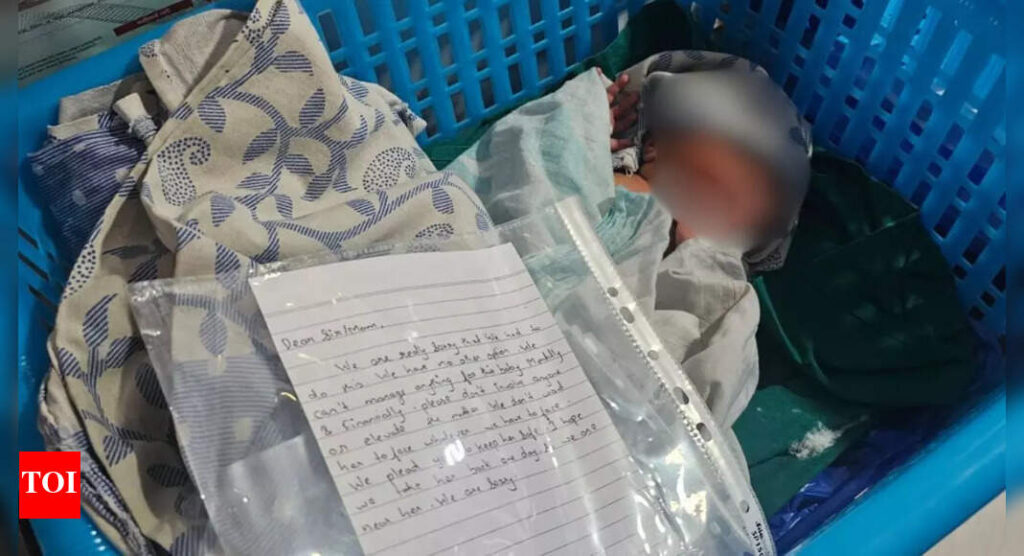 Dear Sir/Mam,
We are really sorry that we had to
do this. We have no other option. We
can't manage anything for this baby. Mentally
& Financially. please don't involve anyone
or elevate the matter. We don't want
her to face whatever we have to face.
We plead you to keep her safe. I hope
we take her back one day. We are
near her. We are sorry.
TOI